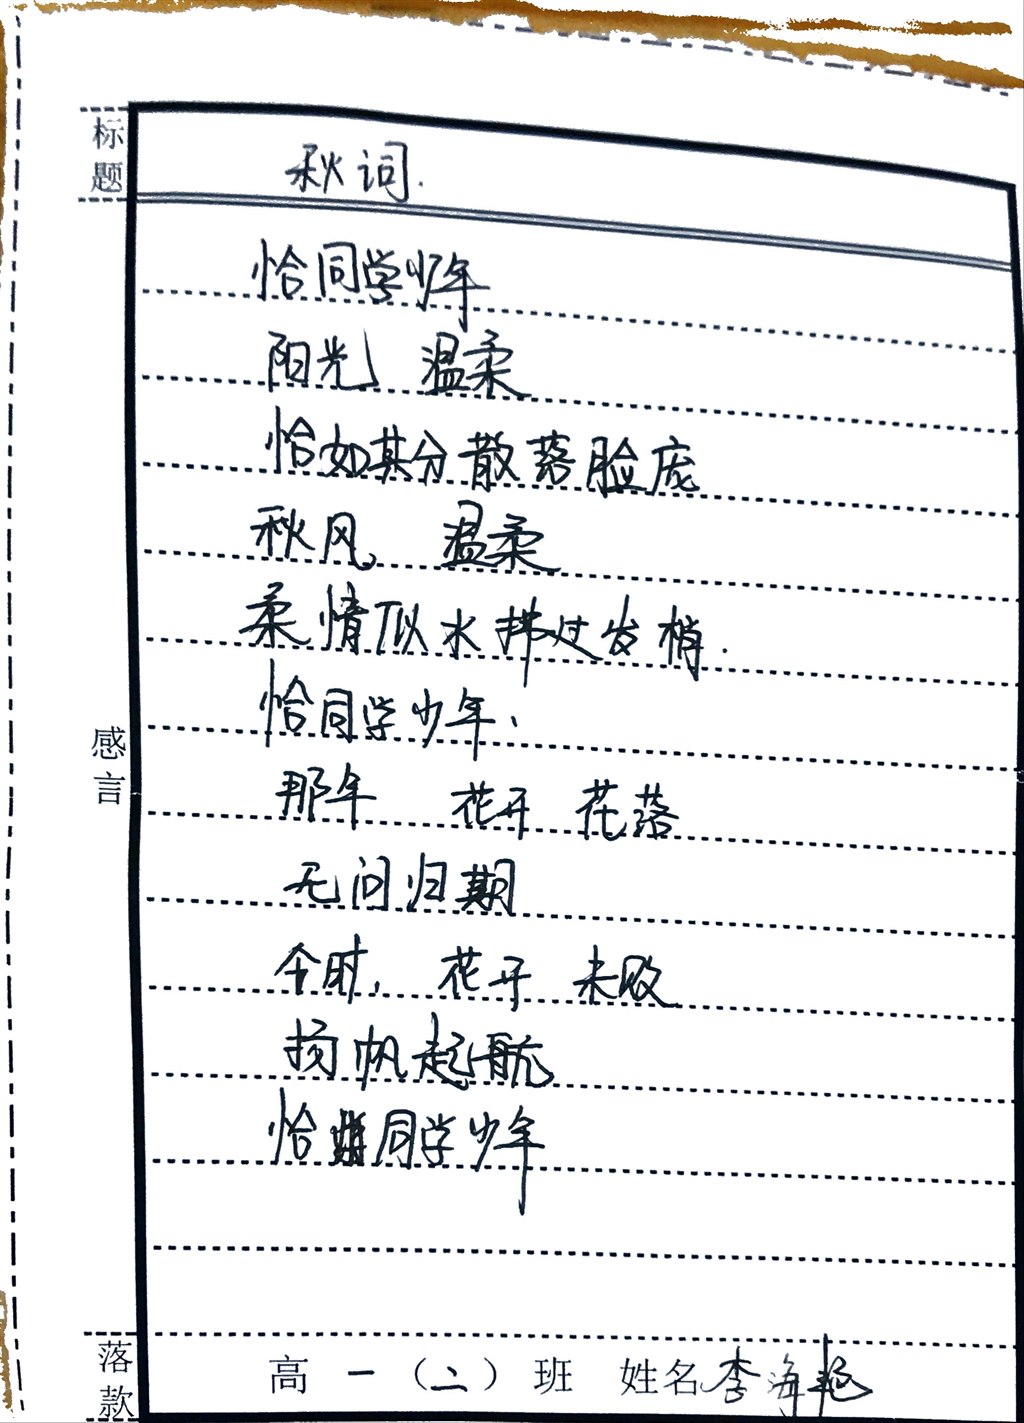 标题
秋词.
恰同学少年
阳光 温柔
恰如其分散落脸庞
秋风, 温柔
柔情似水拂过发梢.
恰同学少年.
感言
那年 花开 花落
无问归期
今时, 花开 未败
扬帆起航
恰同学少年
落款
高一(二)班 姓名李海艳